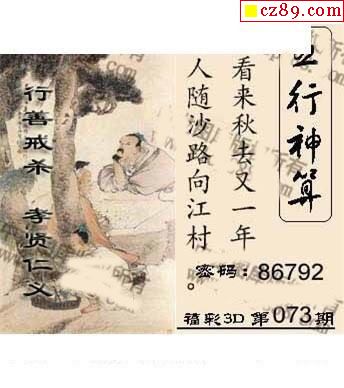 cz89.com
行神算
看来秋去又一年
人随沙路向江村。
密码：86792
福彩3D 第073期
行善戒杀 孝贤仁义